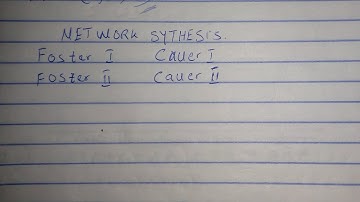 NETWORK SYTHESIS.
Foster I Cauer I
Foster II Cauer II